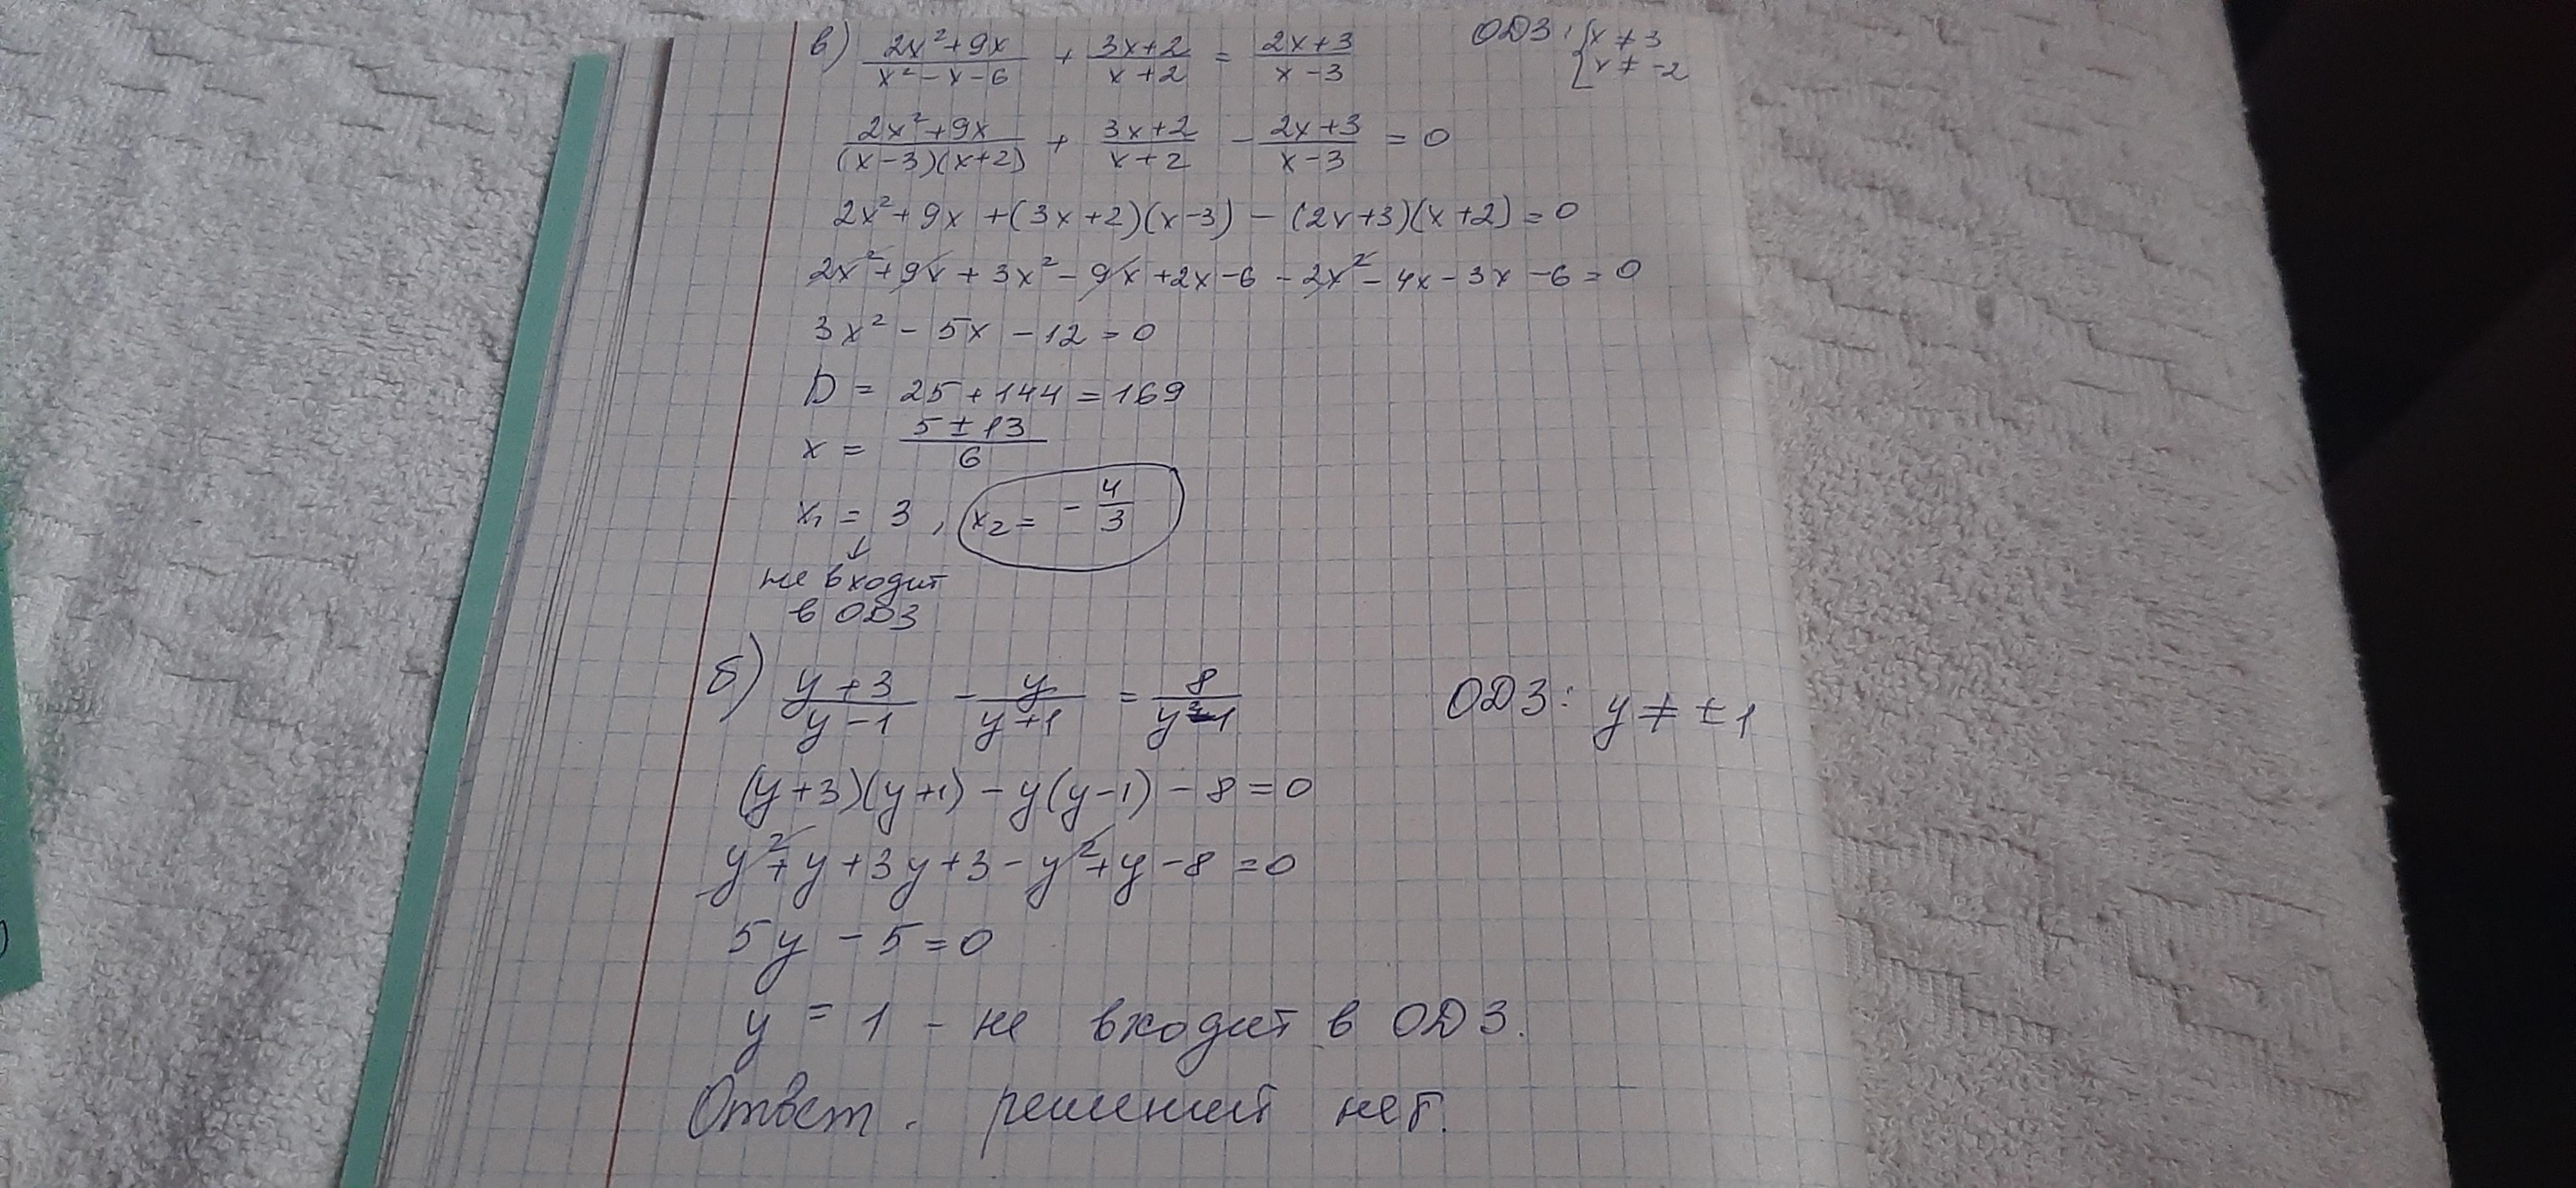 в) (2x²+9x)/(x²-x-6) + (3x+2)/(x+2) = (2x+3)/(x-3) ОДЗ: {x ≠ 3
x ≠ -2
(2x²+9x)/((x-3)(x+2)) + (3x+2)/(x+2) - (2x+3)/(x-3) = 0
2x²+9x+(3x+2)(x-3) - (2x+3)(x+2) = 0
2x²+9x+3x²-9x+2x-6-2x²-4x-3x-6=0
3x²-5x-12=0
D = 25+144=169
x = (5±13)/6
x₁ = 3, x₂ = -4/3
↓
не входит
в ОДЗ
б) (y+3)/(y-1) - y/(y+1) = 8/(y²-1) ОДЗ: y ≠ ±1
(y+3)(y+1)-y(y-1)-8=0
y²+y+3y+3-y²+y-8=0
5y-5=0
y = 1 - не входит в ОДЗ.
Ответ. решений нет.